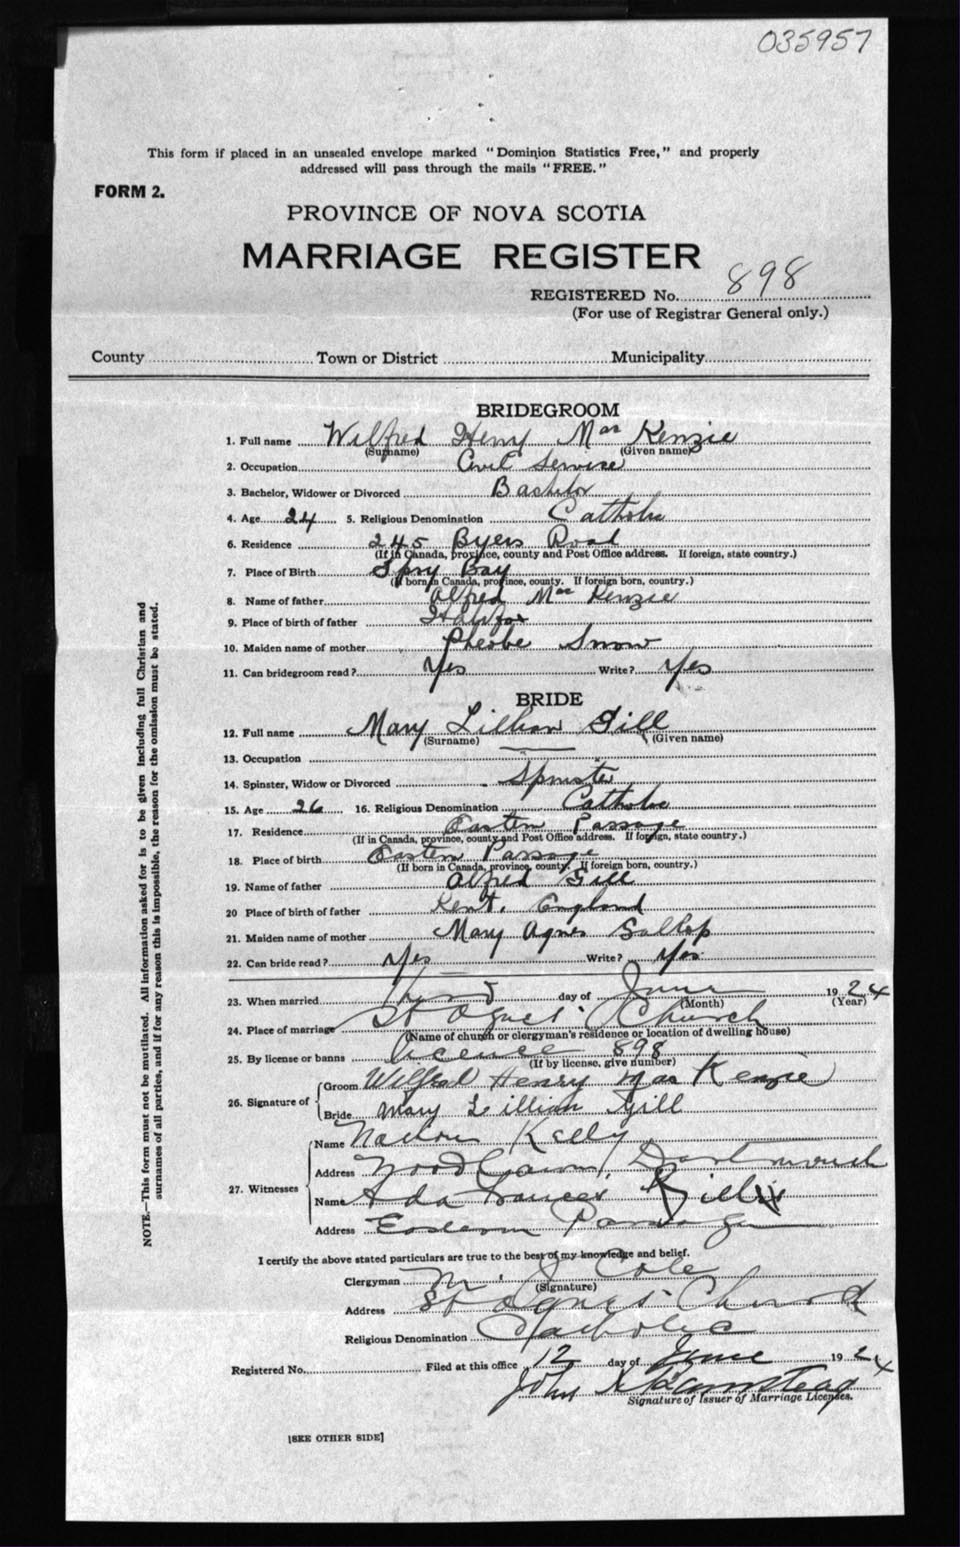 035957
This form if placed in an unsealed envelope marked "Dominion Statistics Free," and properly
addressed will pass through the mails "FREE."
FORM 2.
PROVINCE OF NOVA SCOTIA
MARRIAGE REGISTER
REGISTERED No. 898
(For use of Registrar General only.)
County Town or District Municipality
BRIDEGROOM
1. Full name Wilfred Henry Mac Kenzie
(Surname) (Given name)
2. Occupation Civil Service
3. Bachelor, Widower or Divorced Bachelor
4. Age 24 5. Religious Denomination Catholic
6. Residence 245 Byers Road
(If in Canada, province, county and Post Office address. If foreign, state country.)
7. Place of Birth Spry Bay
(If born in Canada, province, county. If foreign born, country.)
8. Name of father Alfred Mac Kenzie
9. Place of birth of father Halifax
10. Maiden name of mother Pheobe Snow
11. Can bridegroom read? Yes Write? Yes
BRIDE
12. Full name Mary Lillian Gill
(Surname) (Given name)
13. Occupation
14. Spinster, Widow or Divorced Spinster
15. Age 26 16. Religious Denomination Catholic
17. Residence Eastern Passage
(If in Canada, province, county and Post Office address. If foreign, state country.)
18. Place of birth Eastern Passage
(If born in Canada, province, county. If foreign born, country.)
19. Name of father Alfred Gill
20 Place of birth of father Kent, England
21. Maiden name of mother Mary Agnes Sallop
22. Can bride read? Yes Write? Yes
23. When married day of June 1924
(Month) (Year)
24. Place of marriage St Agnes' Church
(Name of church or clergyman's residence or location of dwelling house)
25. By license or banns licence 898
(If by license, give number)
26. Signature of
Groom Wilfred Henry Mac Kenzie
Bride Mary Lillian Gill
27. Witnesses
Name Kelly
Address Woodlawn, Dartmouth
Name Ada Frances
Address Eastern Passage
I certify the above stated particulars are true to the best of my knowledge and belief.
Clergyman Cole
(Signature)
Address St Agnes' Church
Religious Denomination Catholic
Registered No. Filed at this office 12 day of June 1924
John
Signature of Issuer of Marriage Licenses.
[SEE OTHER SIDE]
NOTE.—This form must not be mutilated. All information asked for is to be given including full Christian and
surnames of all parties, and if for any reason this is impossible, the reason for the omission must be stated.